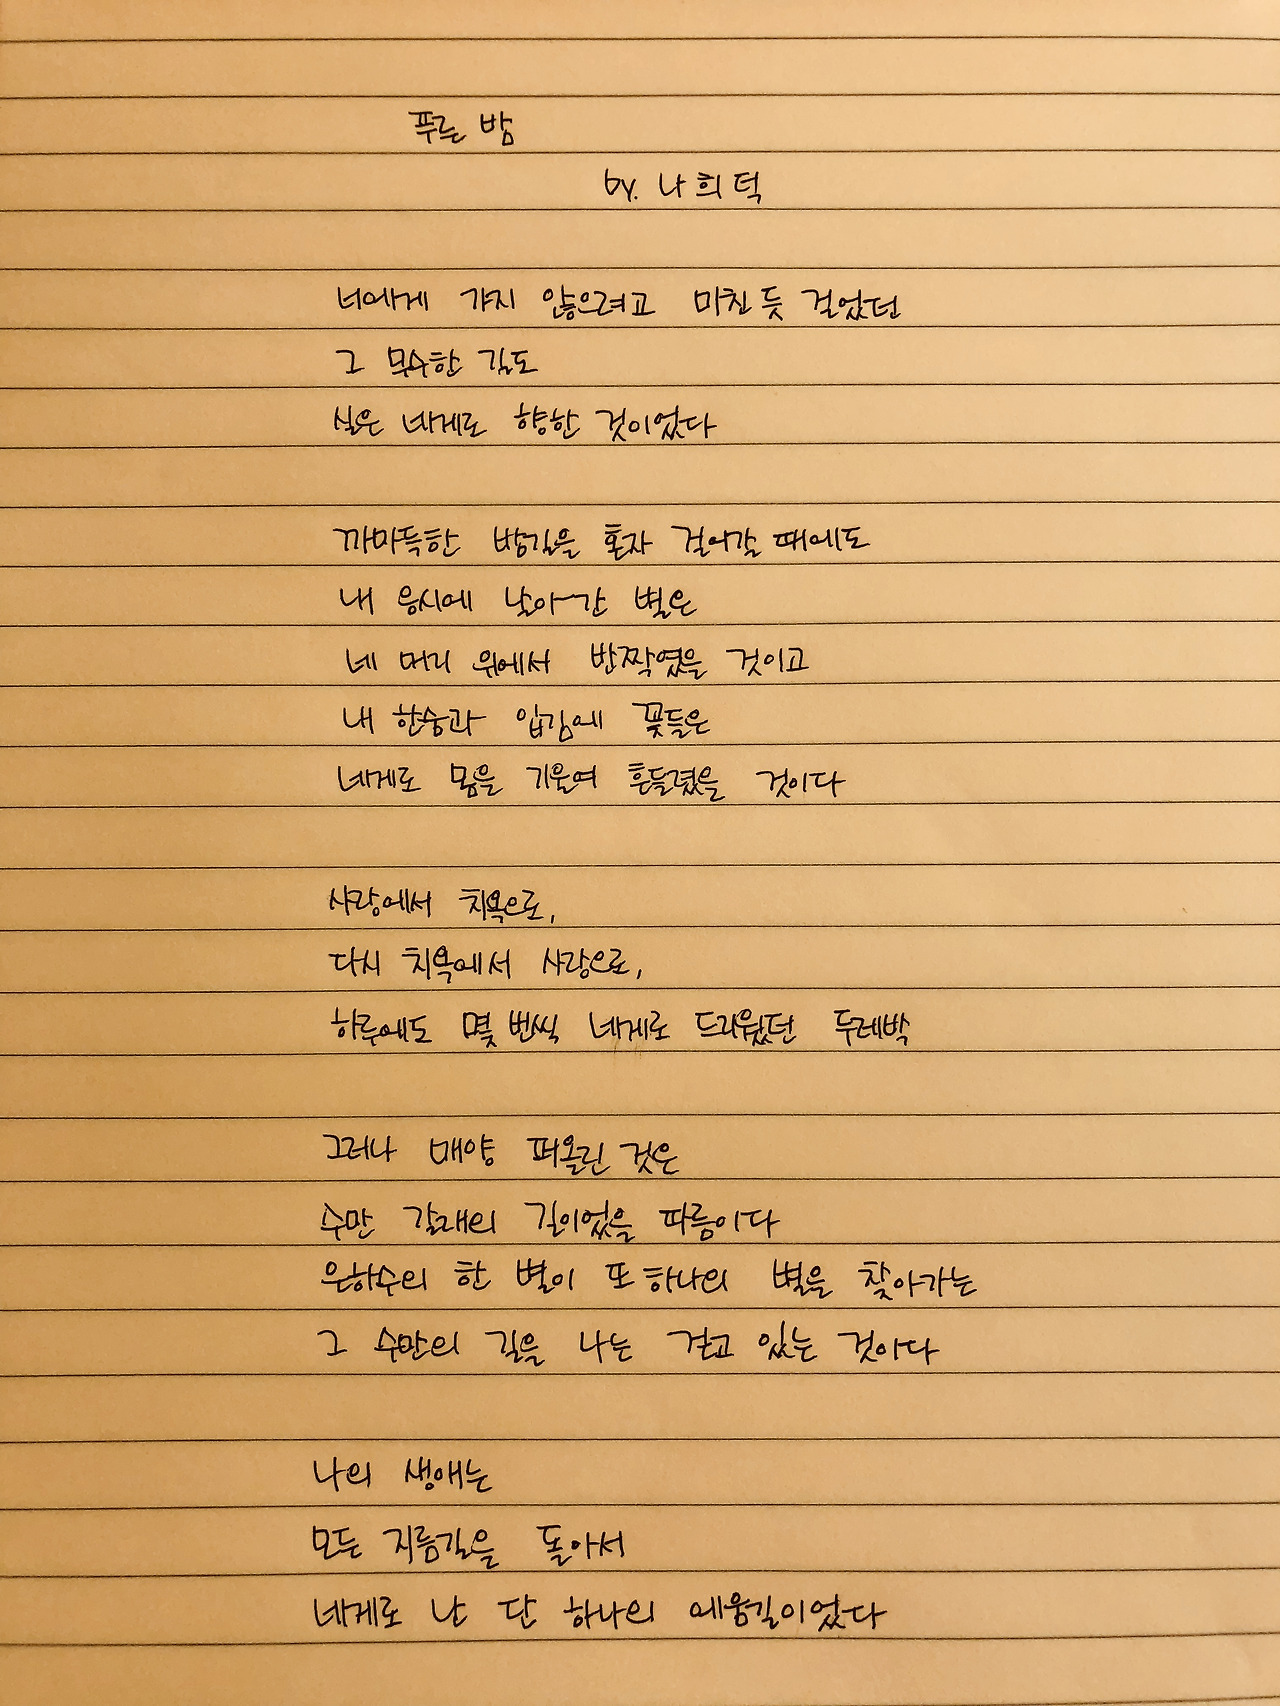 푸른 밤
by. 나희덕
너에게 가지 않으려고 미친 듯 걸었던
그 무수한 길도
실은 네게로 향한 것이었다
까마득한 밤길을 혼자 걸어갈 때에도
내 응시에 날아간 별은
네 머리 위에서 반짝였을 것이고
내 한숨과 입김에 꽃들은
네게로 몸을 기울여 흔들렸을 것이다
사랑에서 치욕으로,
다시 치욕에서 사랑으로,
하루에도 몇 번씩 네게로 드리웠던 두레박
그러나 매양 퍼올린 것은
수만 갈래의 길이었을 따름이다
은하수의 한 별이 또 하나의 별을 찾아가는
그 수만의 길을 나는 걷고 있는 것이다
나의 생애는
모든 지름길을 돌아서
네게로 난 단 하나의 에움길이었다